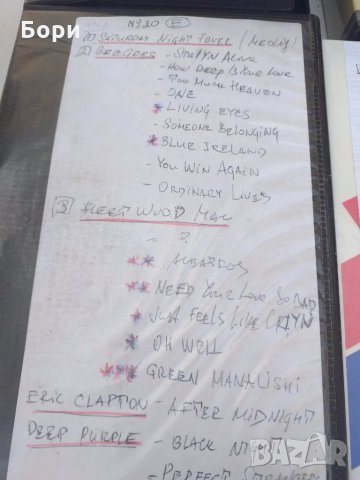 Бори
№20 E
1) SATURDAY NIGHT FEVER (MEDLEY)
2 BEE GEES - STAYN ALIVE
- HOW DEEP IS YOUR LOVE
- TOO MUCH HEAVEN
- ONE
* LIVING EYES
- SOMEONE BELONGING
* BLUE IRELAND
- YOU WIN AGAIN
- ORDINARY LIVES
3 FLEET WOOD MAC
- 2
** ALBATROS
* NEED YOUR LOVE SO BAD
* JUST FEELS LIKE CRIYN
* OH WELL
*** GREEN MANALISHI
ERIC CLAPTION - AFTER MIDNIGHT
DEEP PURPLE - BLACK NIGHT
- PERFECT STRANGERS
BAZAR